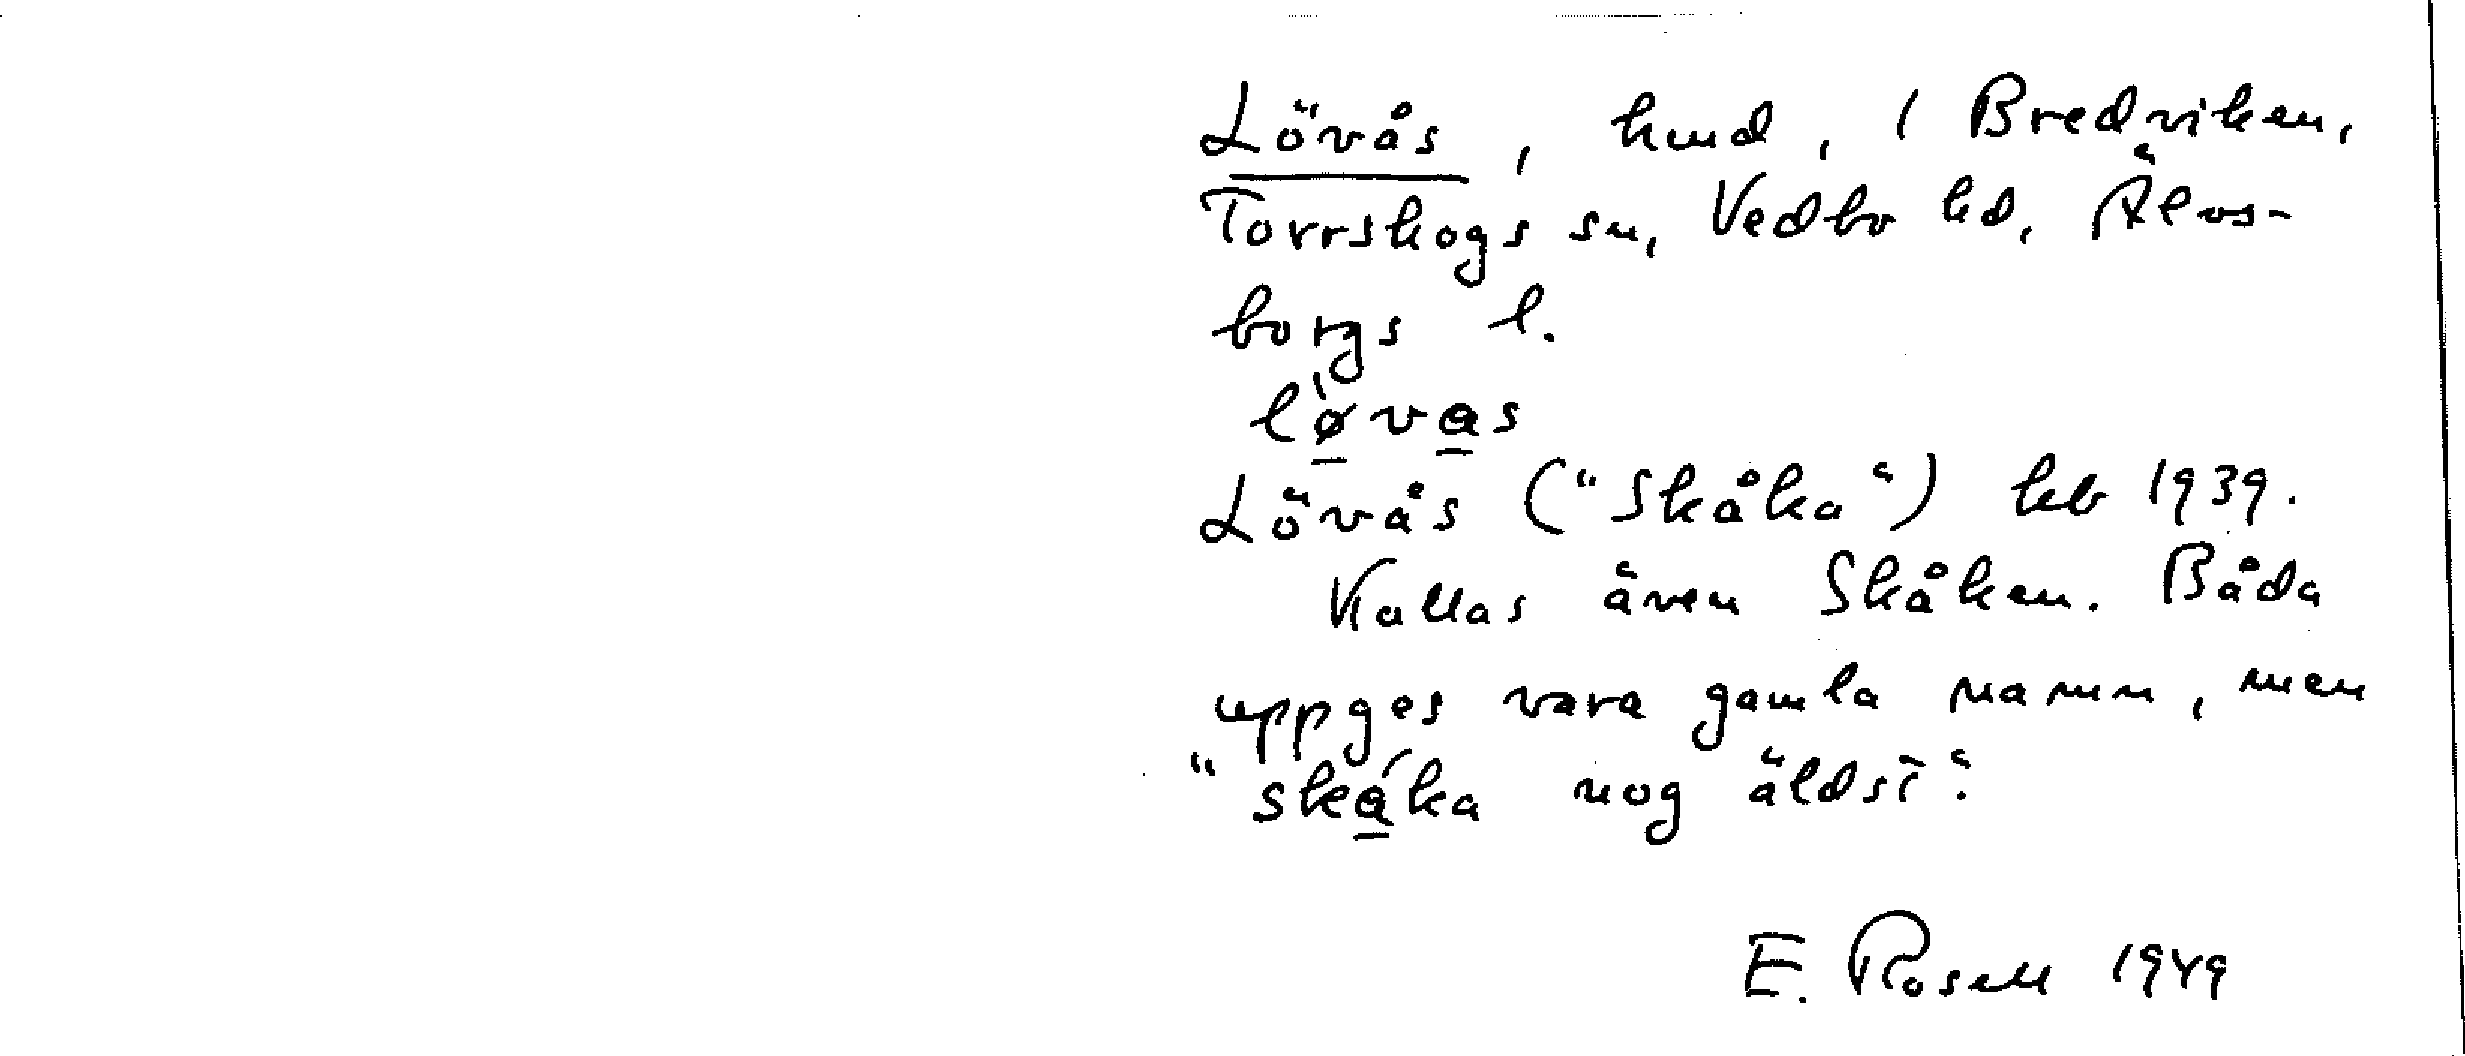 Lövås, hmd, 1 Bredviken,
Torrskogs sn, Vedbo hd, Älvs-
borgs l.
lø̱̀va̱s
Lövås ("Skåka") hb 1939.
Kallas även Skåken. Båda
uppges vara gamla namn, men
"ská̱ka nog äldst".
E. Rosell 1949